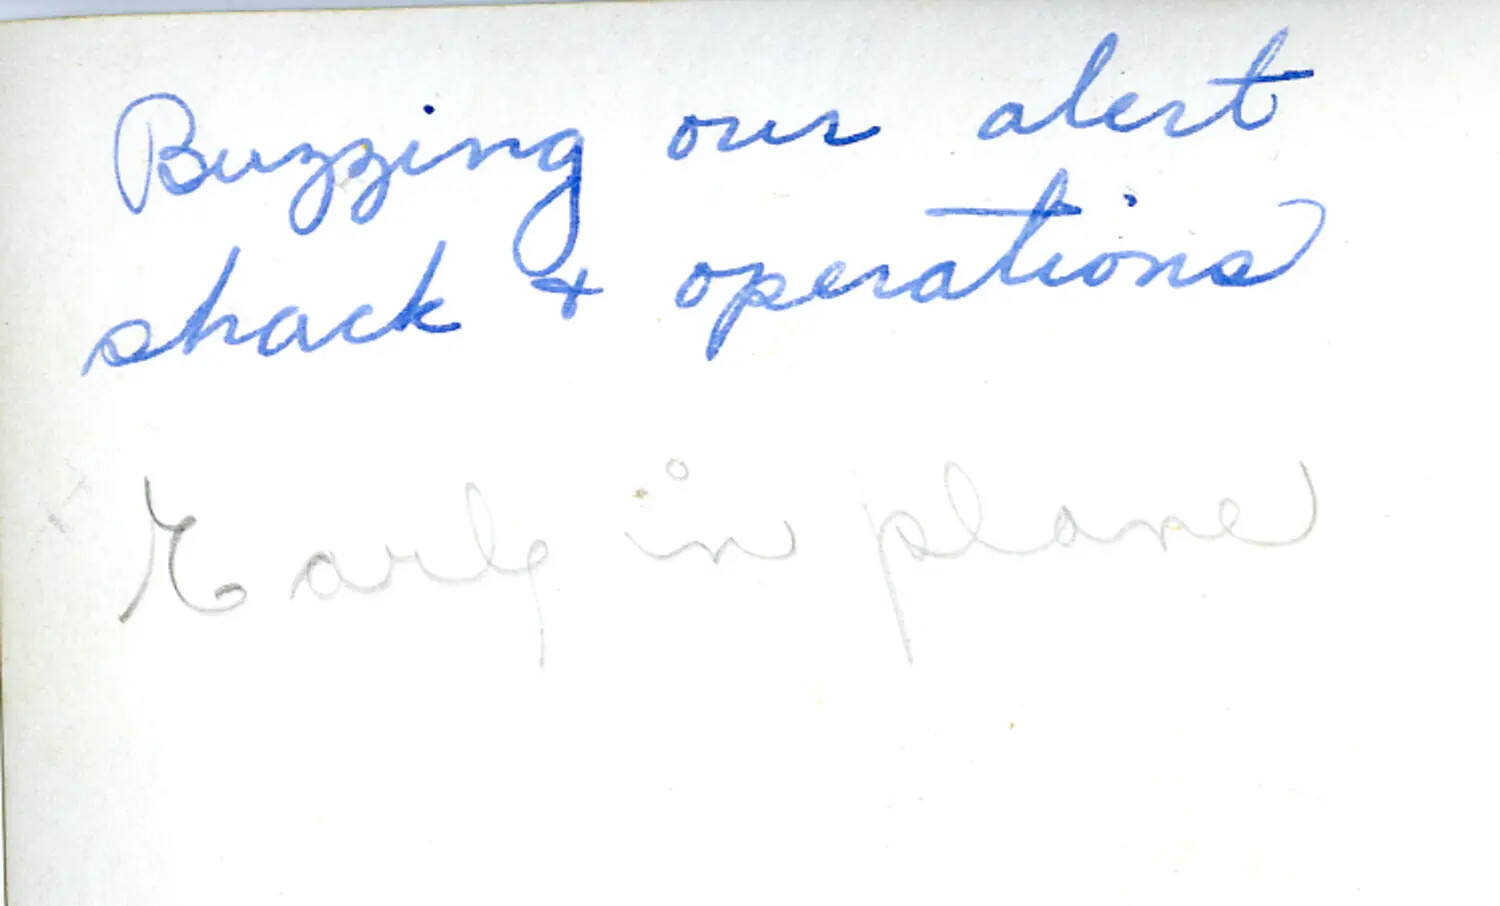 Buzzing our alert
shack + operations
Early in plane